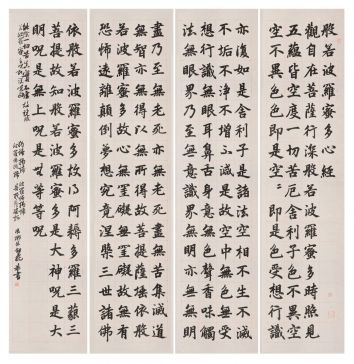 般若波羅蜜多心經
觀自在菩薩行深般若波羅蜜多時照見
五蘊皆空度一切苦厄舍利子色不異空
空不異色色即是空空即是色受想行識
亦復如是舍利子是諸法空相不生不滅
不垢不淨不增不減是故空中無色無受
想行識無眼耳鼻舌身意無色聲香味觸
法無眼界乃至無意識界無無明亦無無明
盡乃至無老死亦無老死盡無苦集滅道
無智亦無得以無所得故菩提薩埵依般
若波羅蜜多故心無罣礙無罣礙故無有
恐怖遠離顛倒夢想究竟涅槃三世諸佛
依般若波羅蜜多故得阿耨多羅三藐三
菩提故知般若波羅蜜多是大神呪是大
明呪是無上呪是無等等呪
能除一切苦真實不虛